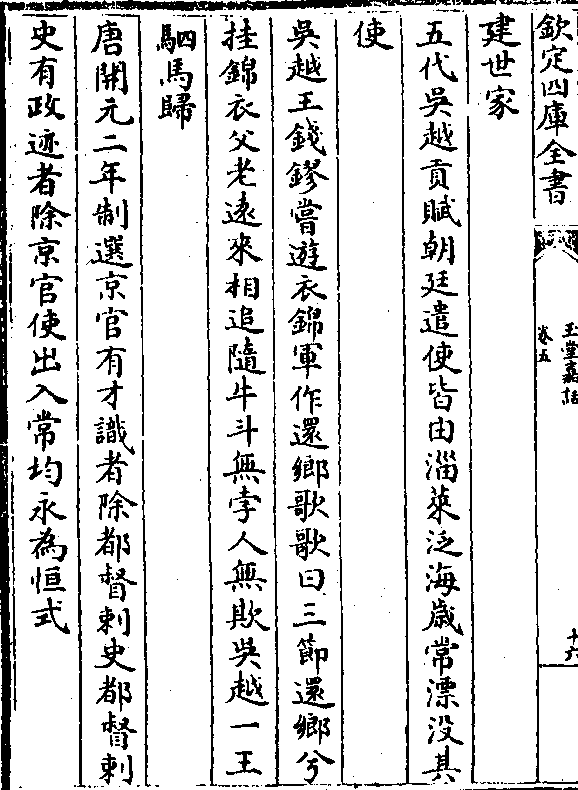 欽定四庫全書
玉堂嘉話
卷五
十六
建世家
五代吳越貢賦朝廷遣使皆由淄萊泛海歲常漂没其
使
吳越王錢鏐嘗遊衣錦軍作還鄉歌歌曰三節還鄉兮
挂錦衣父老逺來相追隨牛斗無孛人無欺吳越一王
駟馬歸
唐開元二年制選京官有才識者除都督刺史都督刺
史有政迹者除京官使出入常均永為恒式